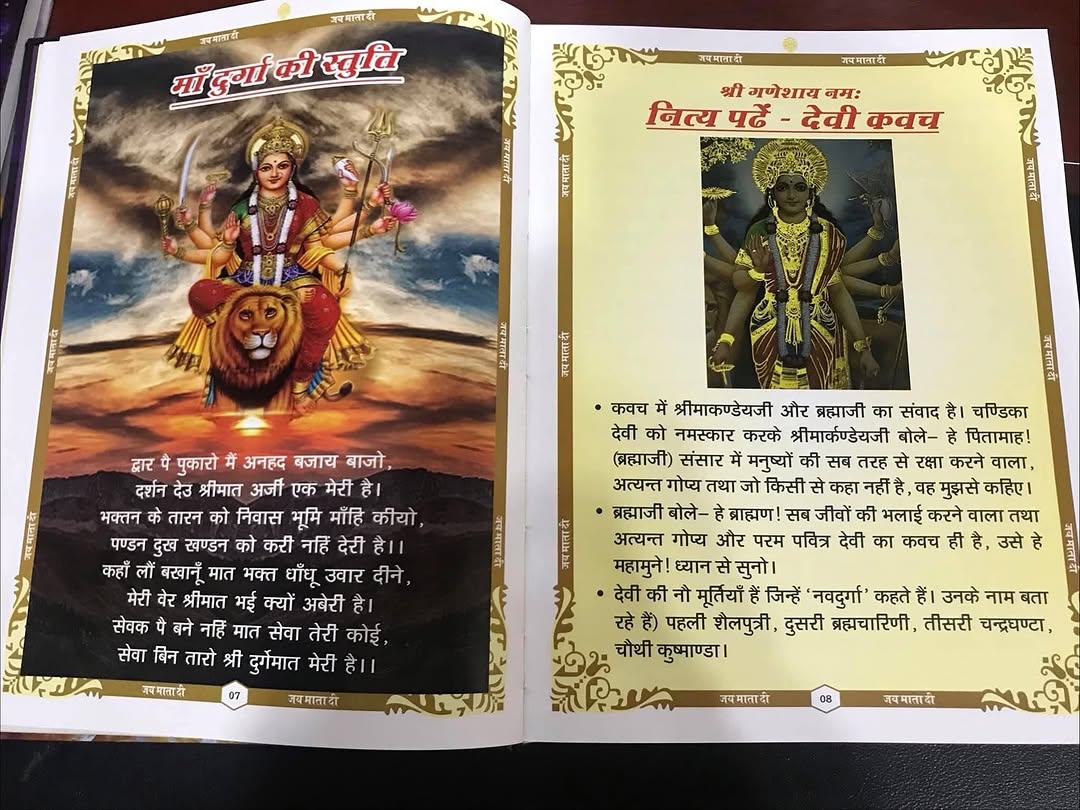 जय माता दी
जय माता दी
माँ दुर्गा की स्तुति
द्वार पै पुकारो मैं अनहद बजाय बाजो,
दर्शन देउ श्रीमात अर्जी एक मेरी है।
भक्तन के तारन को निवास भूमि माँहि कीयो,
पण्डन दुख खण्डन को करी नहिं देरी है।।
कहाँ लौं बखानूँ मात भक्त धाँधू उवार दीने,
मेरी वेर श्रीमात भई क्यों अबेरी है।
सेवक पै बने नहिं मात सेवा तेरी कोई,
सेवा बिन तारो श्री दुर्गेमात मेरी है।।
जय माता दी
जय माता दी
जय माता दी
जय माता दी
जय माता दी
जय माता दी
जय माता दी
07
जय माता दी
जय माता दी
जय माता दी
श्री गणेशाय नमः
नित्य पढें - देवी कवच
• कवच में श्रीमाकण्डेयजी और ब्रह्माजी का संवाद है। चण्डिका
देवी को नमस्कार करके श्रीमार्कण्डेयजी बोले– हे पितामाह!
(ब्रह्माजी) संसार में मनुष्यों की सब तरह से रक्षा करने वाला,
अत्यन्त गोप्य तथा जो किसी से कहा नहीं है, वह मुझसे कहिए।
• ब्रह्माजी बोले– हे ब्राह्मण! सब जीवों की भलाई करने वाला तथा
अत्यन्त गोप्य और परम पवित्र देवी का कवच ही है, उसे हे
महामुने! ध्यान से सुनो।
• देवी की नौ मूर्तियाँ हैं जिन्हें ‘नवदुर्गा’ कहते हैं। उनके नाम बता
रहे हैं) पहली शैलपुत्री, दुसरी ब्रह्मचारिणी, तीसरी चन्द्रघण्टा,
चौथी कुष्माण्डा।
जय माता दी
जय माता दी
जय माता दी
जय माता दी
जय माता दी
जय माता दी
जय माता दी
08
जय माता दी